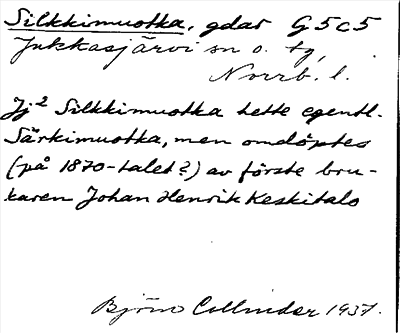 Silkkimuotka, gdar G5c5
Jukkasjärvi sn o. tg,
Norrb. l.
Jj² Silkkimuotka hette egentl.
Särkimuotka, men omdöptes
(på 1870-talet?) av förste bru-
karen Johan Henrik Keskitalo
Björn Collinder 1937.